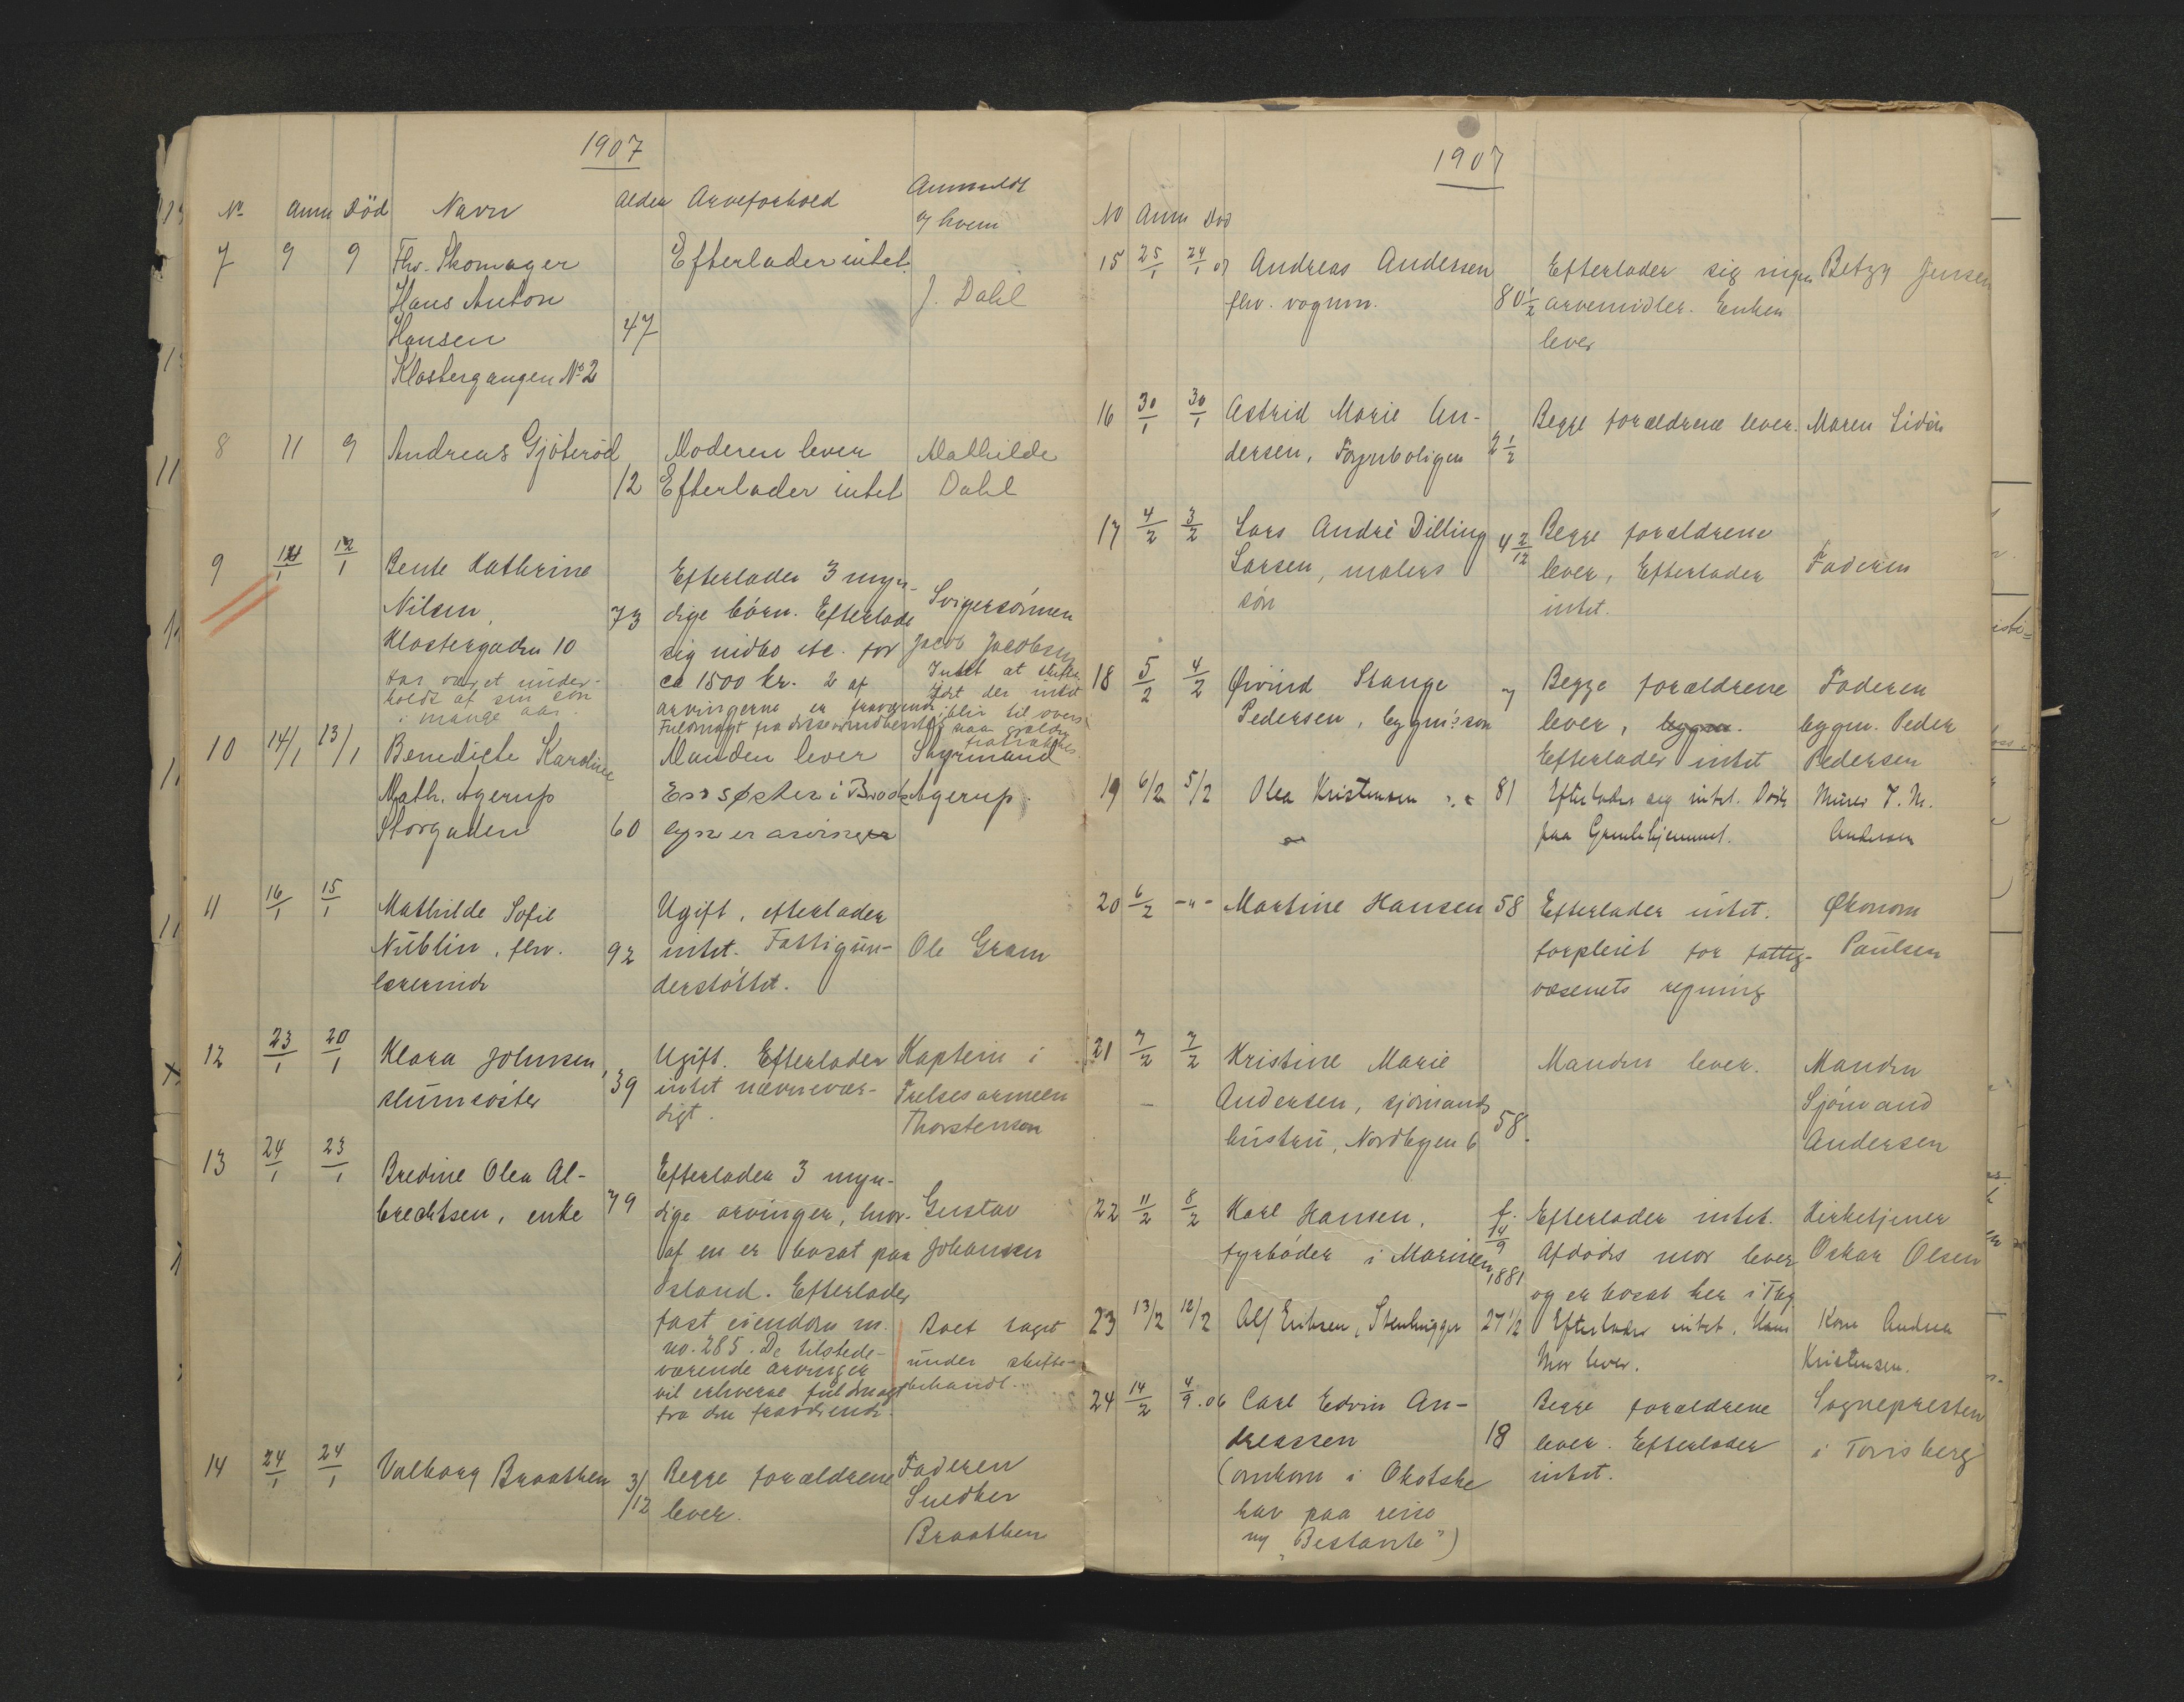 1907
No Anm Død Navn Alder Arveforhold Anmeldt
af hvem
7 9 9 Fhv. Skomager Efterlader intet.
Hans Anton J. Dahl
Hansen 47
Klostergangen No 2
8 11 9 Andreas Gjöteröd Moderen lever Mathilde
12 Efterlader intet Dahl
9 12/1 Bente Kathrine Efterlader 3 myn-
Nilsen, 73 dige börn. Efterlade Svigersönnen
Klostergaden 10 sig indbo etc. for Jacob Jacobsen
Har været under- ca 1500 kr. 2 af Intet at skifte
holdt af sin sön arvingerne er fraværende, idet der intet
i mange aar. Fuldmagt fra disse blir til overs
10 14/1 13/1 Benedicte Karoline Manden lever Styrmand
Math. Agerup En søster i Agerup.
Storgaden 60 er arvinger
11 16/1 15/1 Mathilde Sofie Ugift, efterlader
Nüblin, fhv. 92 intet. Fattigun- Ole Gram
lærerinde derstöttet.
12 23/1 20/1 Klara Johnsen, Ugift. Efterlader Kaptein i
slumsöster 39 intet nævnevær- Frelsesarmeen
digt. Thorstensen
13 24/1 23/1 Bredine Olea Al- Efterlader 3 myn-
brechtsen, enke 79 dige arvinger, hvor- Gustav
af en er bosat paa Johansen
Island. Efterlader
fast eiendom m. Boet taget
no. 285. De tilstede- under skifte-
værende arvinger behandl.
vil erhverve fuldmagt
fra den fraværende.
14 24/1 24/1 Valborg Braathen 3/12 Begge forældrene Faderen
lever. Snedker
Braathen
1907
No Anm Død
15 25/1 24/1 07 Andreas Andersen Efterlader sig ingen Betzy Jensen
fhv. vognm. 80 1/2 arvemidler. Enken
lever
16 30/1 30/1 Astrid Marie An- Begge forældrene lever. Maren Lidén
dersen, Fognboligen 2 1/2
17 4/2 3/2 Lars André Dilling 4 2/12 Begge forældrene
Larsen, malers lever, Efterlader Faderen
sön intet.
18 5/2 4/2 Øivind Stange 7 Begge forældrene Faderen
Pedersen, bygm's sön lever, bygm. Peder
Efterlader intet Pedersen
19 6/2 5/2 Olea Kristensen 81 Efterlader sig intet. Døde Murer T. M.
paa Gamlehjemmet. Andersen
20 6/2 -"- Martine Hansen 58 Efterlader intet. Økonom
forpleiet for fattig- Paulsen
væsenets regning
21 7/2 7/2 Kristine Marie Manden lever. Manden
Andersen, sjömands Sjömand
hustru, Nordbyen 6 58. Andersen
22 11/2 8/2 Karl Hansen, f. 14/9 1881 Efterlader intet. Kirketjener
fyrböder i Marinen Afdødes mor lever Oskar Olsen
og er bosat her i Tbg
23 13/2 12/2 Alf Eriksen, Stenhugger 27 1/2 Efterlader intet. Hans Kone Andrea
Mor lever. Kristensen.
24 14/2 4/9.06 Carl Edvin An- Begge forældrene Sognepresten
dreassen 18 lever. Efterlader i Tønsberg
(omkom i Okotske intet.
hav paa reise
m/ "Bestante")